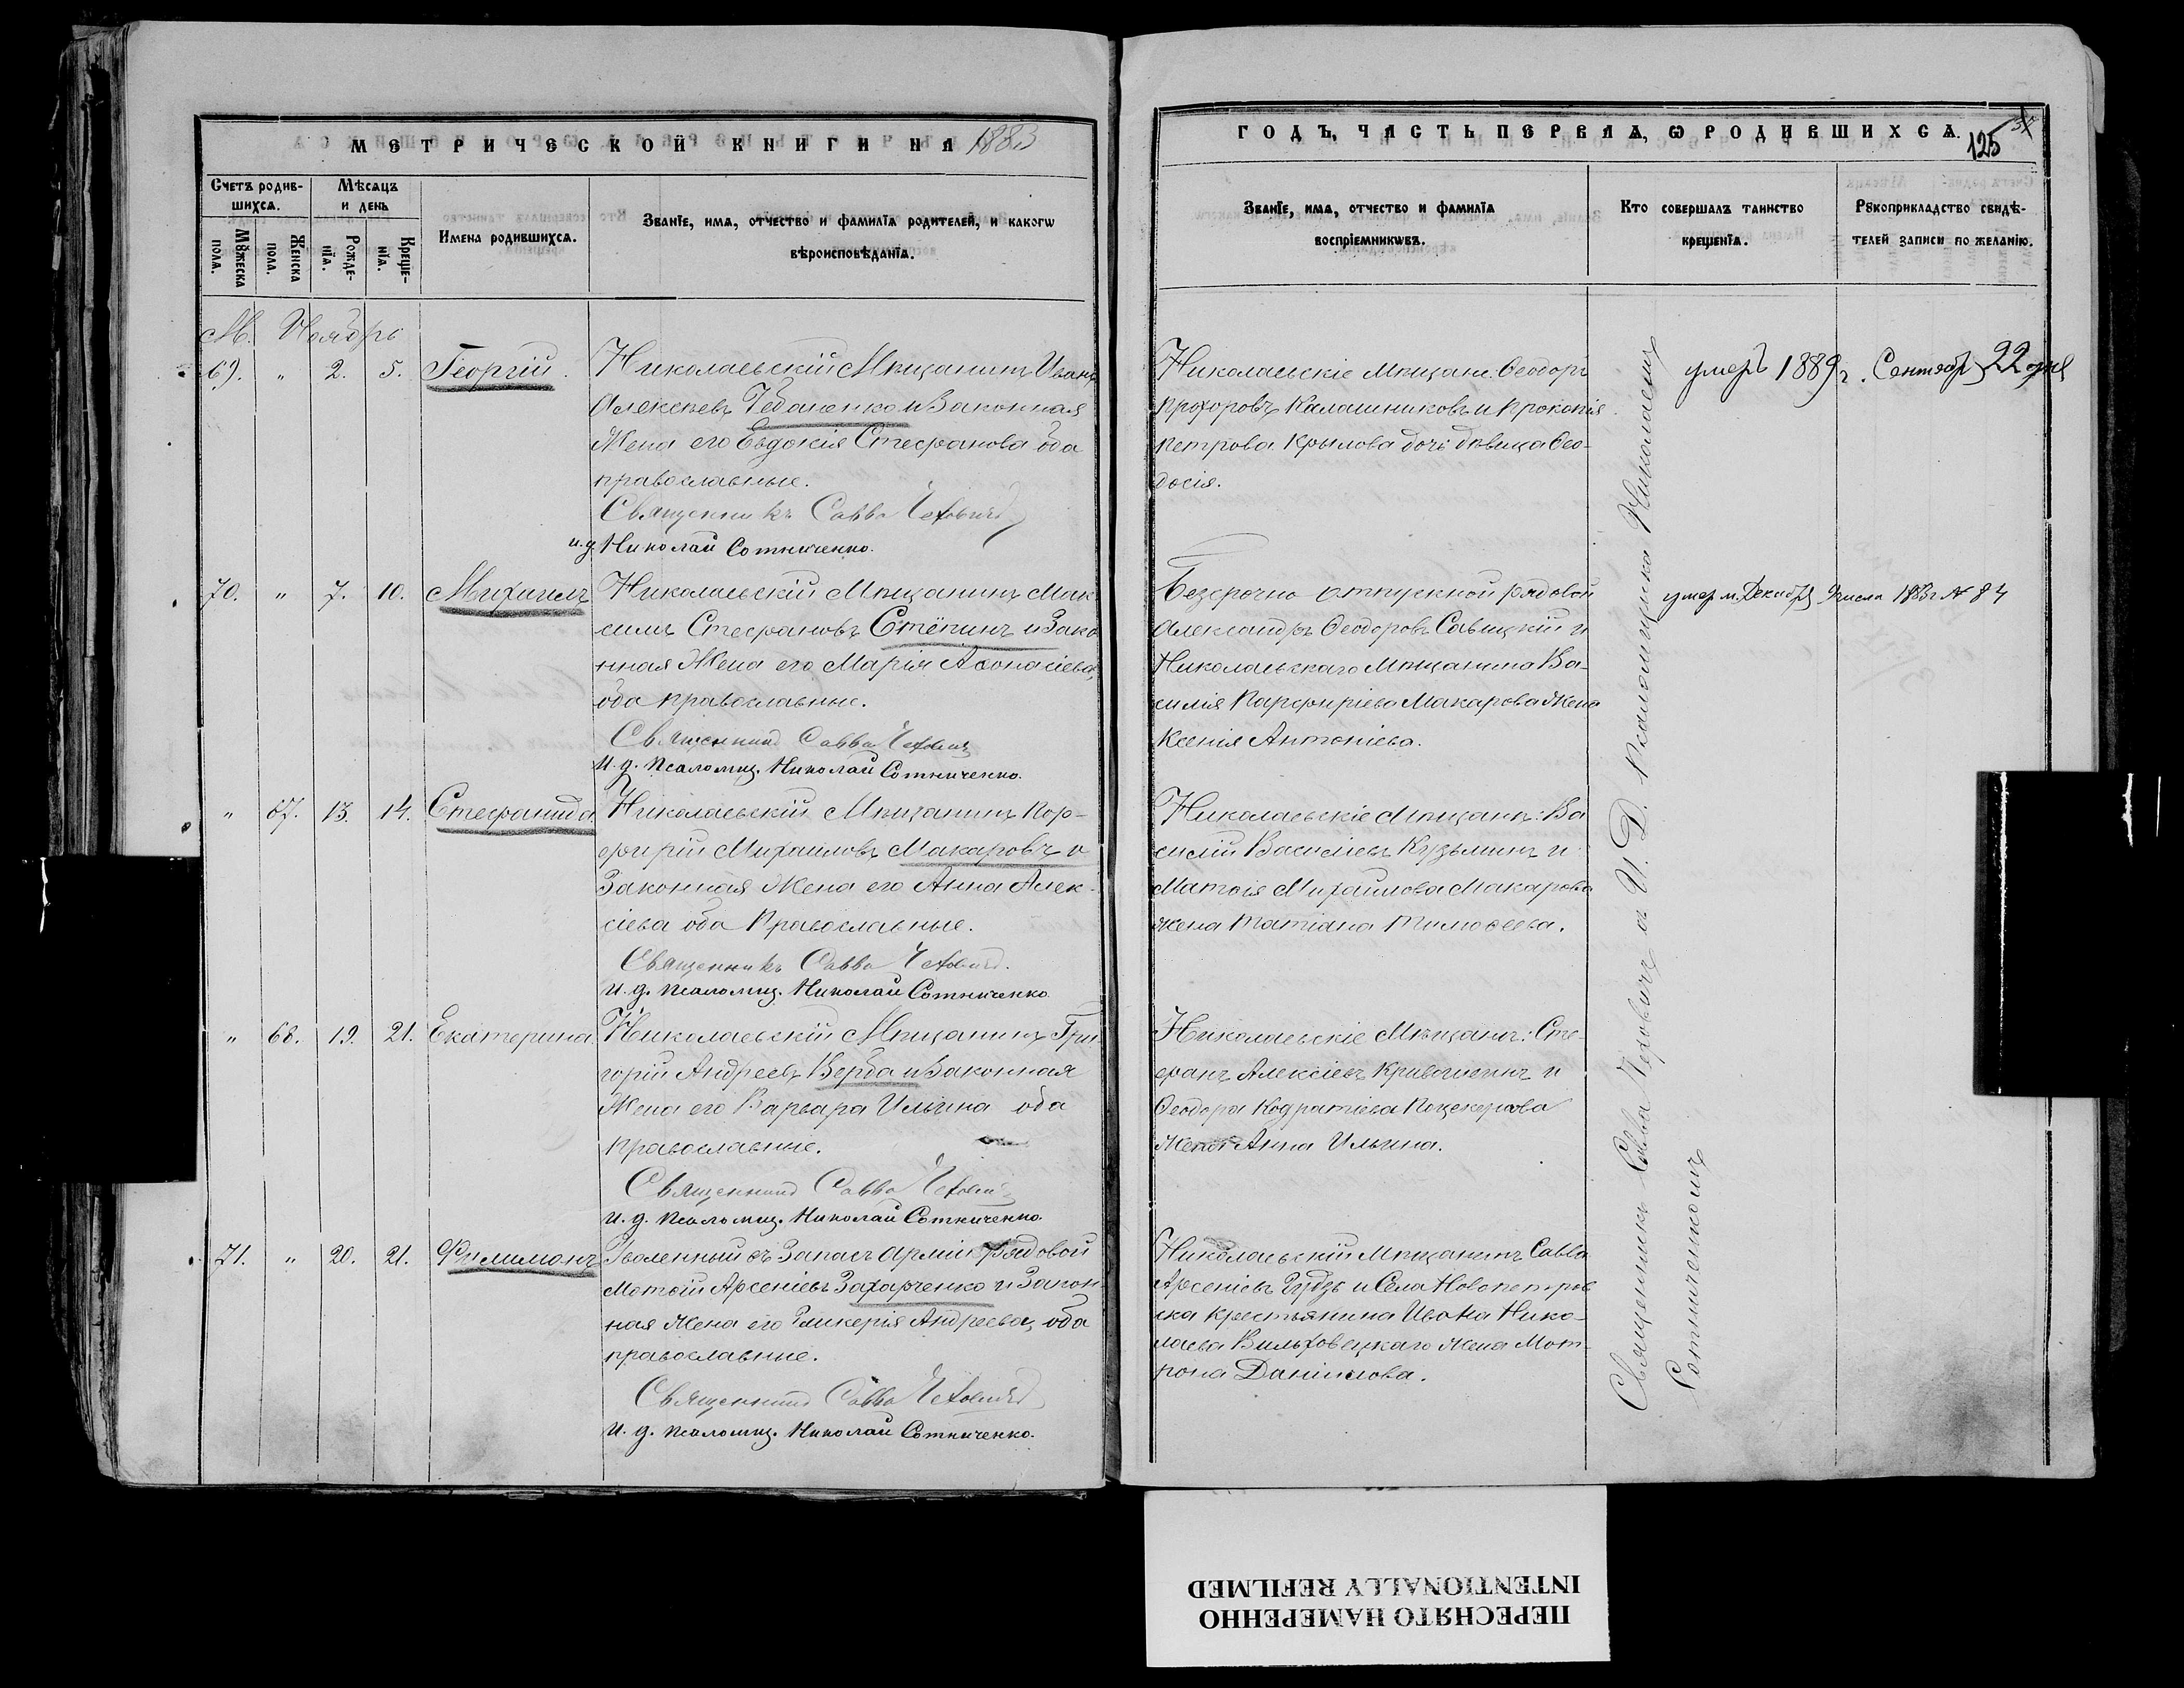 МЕТРИЧЕСКОЙ КНИГИ НА 1883
Счетъ родив-
шихся.
Мѣсяцъ
и день
Мꙋжеска
пола.
Женска
пола.
Рожде-
нїя.
Креще-
нїя.
Имена родившихся.
Званїе, имя, отчество и фамилїа родителей, и какогѡ
вѣроисповѣданїа.
М. Ноябрь
69. " 2. 5. Георгій. Николаевскій Мѣщанинъ Иванъ
Алексѣевъ и Законная
Жена его Евдокія Стефанова оба
православные.
Священникъ Савва Чехович
и.д. Николай Сотниченко.
70. " 7. 10. Михаилъ Николаевскій Мѣщанинъ Мак
симъ Стефановъ Стёпинъ и Зако
нная Жена его Марія Аѳонасіева,
оба православные.
Священник Савва Чехович
И.д. Псаломщ. Николай Сотниченко.
" 67. 13. 14. Стефанида Николаевскій Мѣщанинъ Пор-
фирій Михайловъ Макаровъ и
Законная Жена его Анна Алек-
сіева оба Православные.
Священникъ Савва Чехович.
И.д. Псаломщ. Николай Сотниченко.
" 68. 19. 21. Екатерина Николаевскій Мѣщанинъ Гри
горій Андреевъ Верба и Законная
Жена его Варвара Ильина оба
православные.
Священник Савва Чехович
И.д. Псаломщ. Николай Сотниченко.
71. " 20. 21. Филимонъ Уволенный въ Запасъ Арміи рядовой
Матѳій Арсеніевъ Захарченко и Закон
ная Жена его Гликерія Андреева, оба
православные.
Священник Савва Чехович
И.д. Псаломщ. Николай Сотниченко.
ГОДЪ, ЧАСТЬ ПЕРВАЯ, Ѡ РОДИВШИХСЯ.
125
Званїе, имя, отчество и фамилїа
воспрїемникѡвъ.
Кто совершалъ таинство
крещенїа.
Рꙋкоприкладство свидѣ-
телей записи по желанїю.
Николаевскіе Мѣщане: Ѳеодоръ
Прохоровъ Калашниковъ и Прокопія
Петрова Крылова дочь дѣвица Ѳео-
досія.
умеръ 1889 г. Сентябр 22 дня
Безсрочно отпускной рядовой
Александръ Ѳеодоровъ Савицкій и
Николаевскаго Мѣщанина Ва-
силія Парфиріева Макарова Жена
Ксенія Антоніева.
умер м. Декабря числа 1883 г № 84
Николаевскіе Мѣщане: Ва
силій Василіевъ Кузьминъ и
Матѳія Михайлова Макарова
жена Татіана Тимоѳеева.
Николаевскіе Мѣщане: Сте-
фанъ Алексіевъ Кривошеинъ и
Ѳеодора Кодратіева
Жена Анна Ильина.
Николаевскій Мѣщанинъ Савва
Арсеніевъ Гудзь и Села Новопетров
ска крестьянина Ивана Нико-
лаева Вильховецкаго Жена Мот-
рона Даніилова.
Священникъ Савва Чеховичъ а И. Д. Псаломщика Николаемъ
Сотниченкомъ
ПЕРЕСНЯТО НАМЕРЕННО
INTENTIONALLY REFILMED